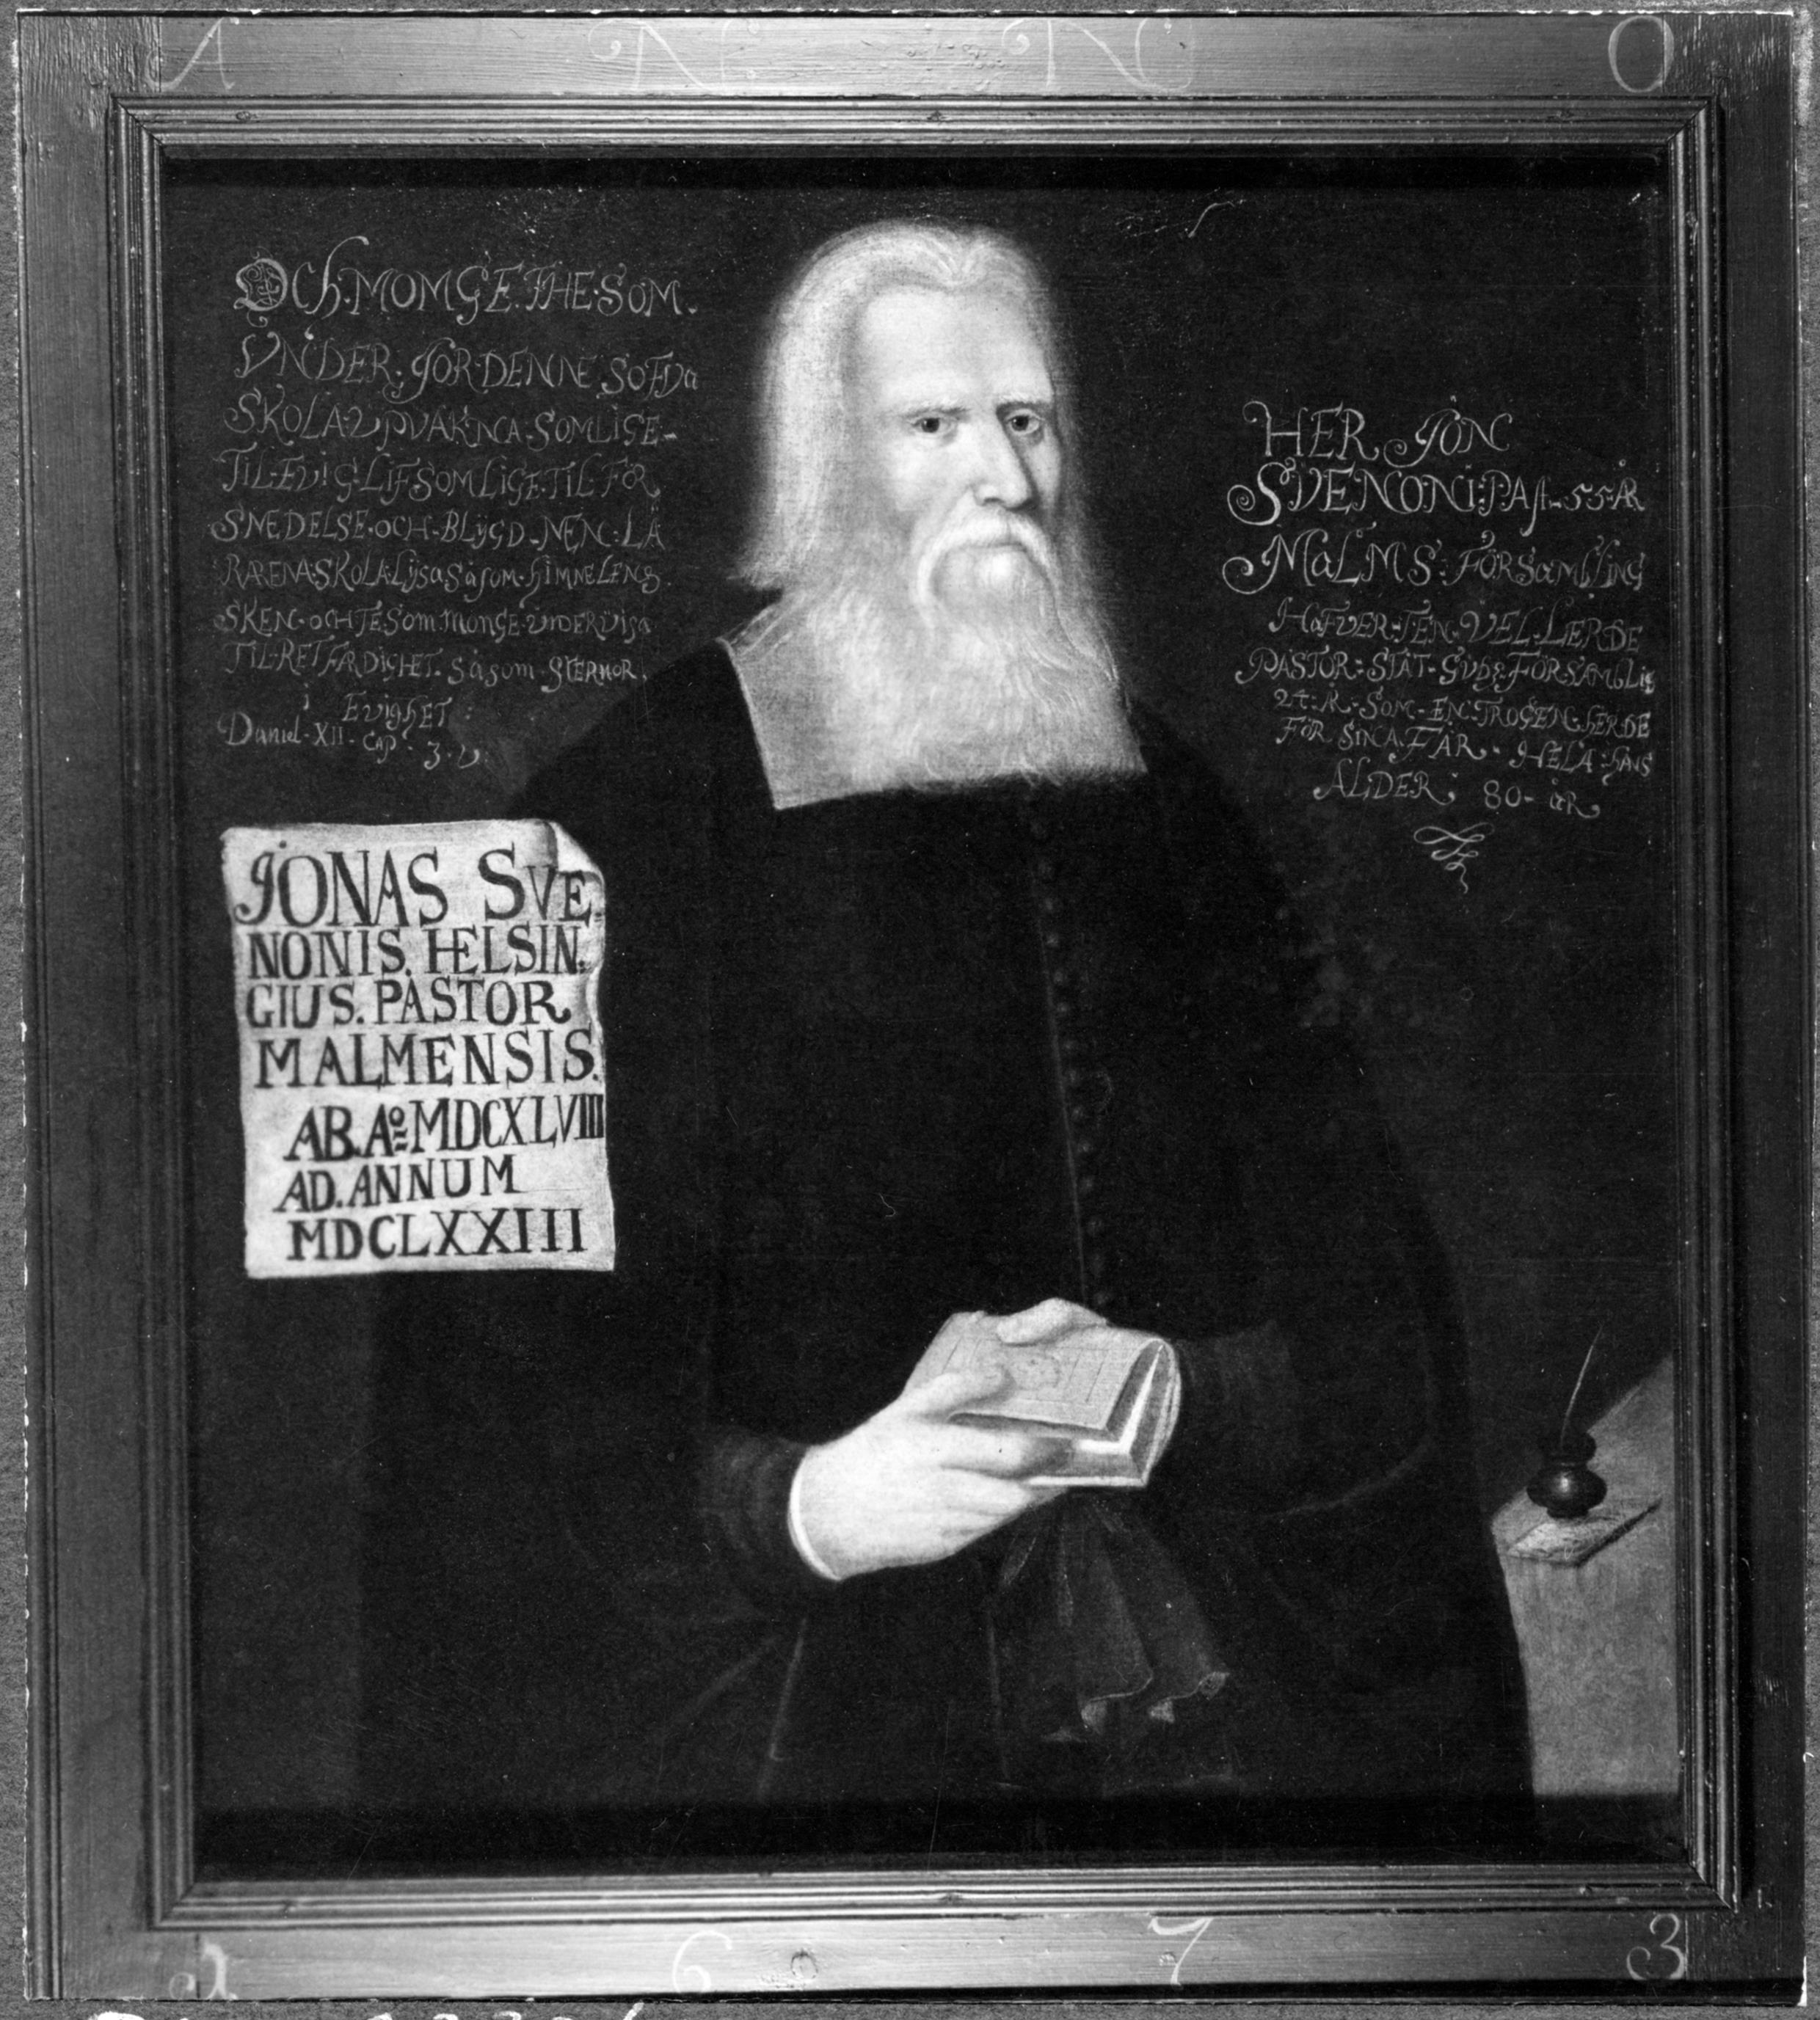 A N N O
Och·MOMGE·THE·SOM·
VNDER·JORDENNE SOFVa
SKOLA VPVAKNA·SOMLIGE-
TIL·EVIG·LIF SOMLIGE·TIL·FÖR
SMEDELSE·OCH·BLYGD·MEN·LÄ
RARENA·SKOLA·LYSa Såsom·HIMMELENS·
SKEN·OCH TE Som MONGE·VNDERVISA
TIL·RETFÆRDIGHET· Såsom·STERNOR,
i EVIGHET:
Daniel·XII·CAP· 3·V
HER JÖN
SVENONI·PAst·55·ÅR
MaLMS·FÖRSamLING
HaFVER·TEN·VEL·LERDE
PASTOR·STÅT·GUDZ·FÖRSAMBLIG
24·ÅR·SOM·EN·TROGEN·HERDE
FÖR SINA FÅR· HELA·HANS
ÅLDER· 80- åR,
JONAS SVE
NONIS. HELSIN.
GIUS. PASTOR
MALMENSIS.
AB. Aº MDCXLVIII
AD. ANNUM
MDCLXXIII
1 6 7 3